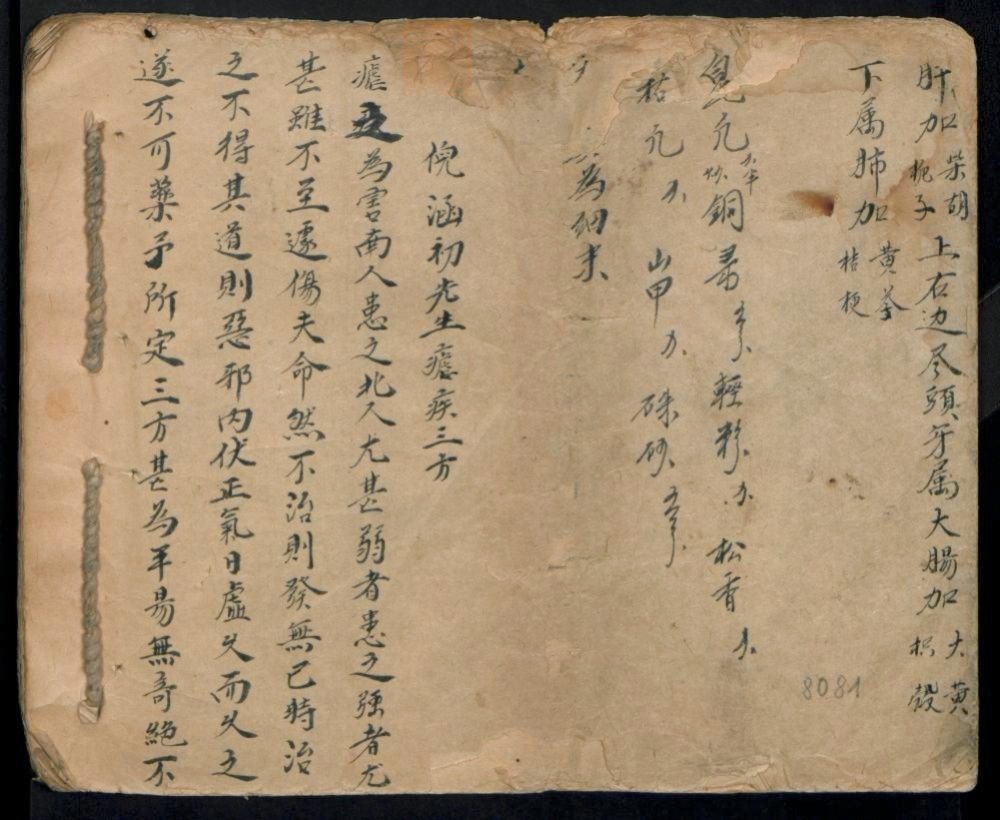 肝加柴胡梔子上右边尽頭牙属大腸加大黃枳殼
下属肺加黃芩桔梗
銅青 輕粉 松香
山甲 硃砂
為細末
倪涵初先生瘧疾三方
瘧之為害南人患之北人尤甚弱者患之强者尤
甚雖不至遽傷夫命然不治則發無已時治
之不得其道則惡邪内伏正氣日虛久而久之
遂不可藥予所定三方甚為平易無奇絕不
8081